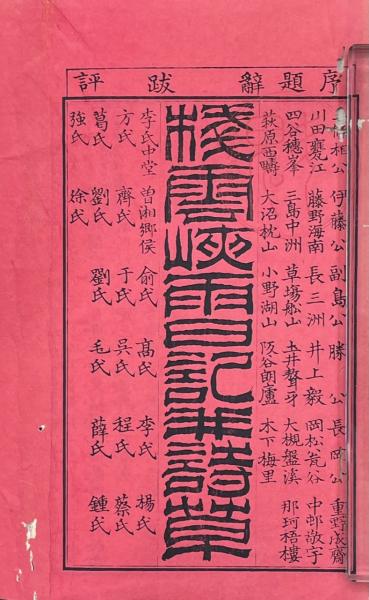 序題辭跋評
相公 伊藤公 副島公 勝公 長岡公 重野成齋
川田甕江 藤野海南 長三洲 井上毅 岡松瓮谷 中邨敬宇
四谷穗峯 三島中洲 草塲船山 土井聱牙 大槻盤溪 那珂梧樓
荻原西疇 大沼枕山 小野湖山 阪谷朗廬 木下梅里
棧雲峽雨日記並詩草
李氏中堂 曾湘鄉侯 俞氏 高氏 李氏 楊氏
方氏 齊氏 于氏 吳氏 程氏 蔡氏
葛氏 劉氏 劉氏 毛氏 薛氏 鍾氏
強氏 徐氏